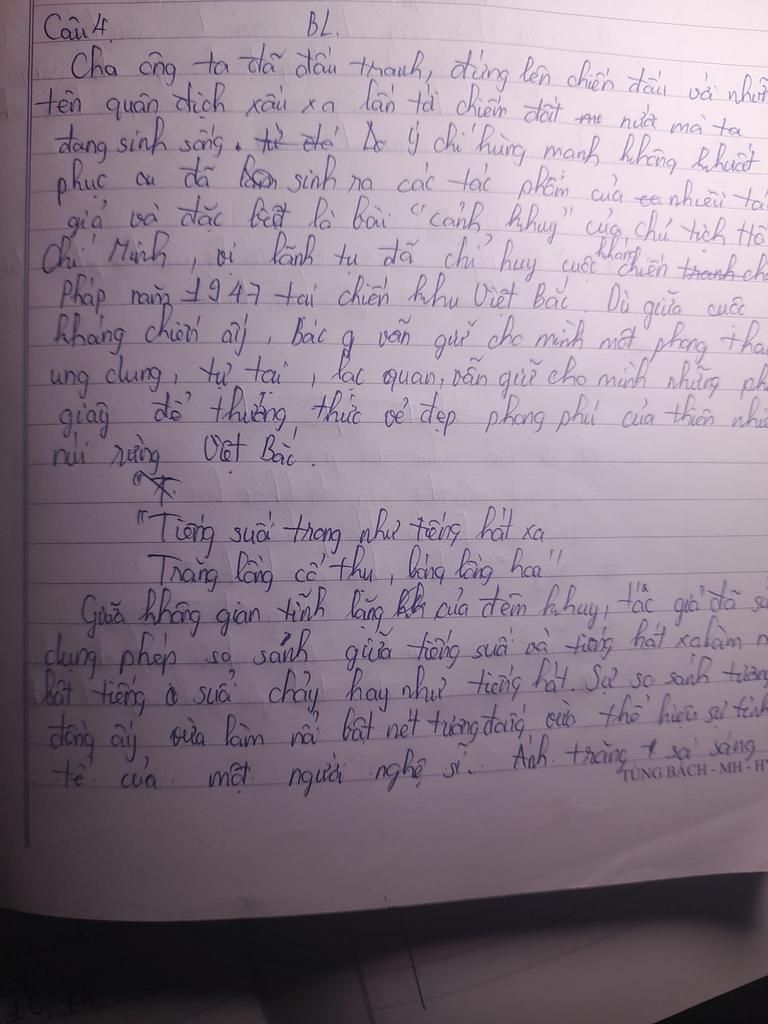 Câu 4. BL.
Cha ông ta đã đấu tranh, đứng lên chiến đấu với
tên quân địch xấu xa lấn tới chiếm đất nước mà ta
đang sinh sống. ý chí hùng mạnh không khuất
phục đã sinh ra các tác phẩm của nhiều
giả và đặc biệt là bài "cảnh khuy" của chủ tịch Hồ
Chí Minh, vị lãnh tụ đã chỉ huy cuộc kháng chiến
Pháp năm 1947 tại chiến khu Việt Bắc. Dù giữa cuộc
kháng chiến ấy, Bác vẫn giữ cho mình một phong
ung dung, tự tại, lạc quan, vẫn giữ cho mình những
giây để thưởng thức vẻ đẹp phong phú của thiên
núi rừng Việt Bắc.
"Tiếng suối trong như tiếng hát xa
Trăng lồng cổ thụ, bóng lồng hoa"
Giữa không gian tĩnh lặng của đêm khuy, tác giả đã
dụng phép so sánh giữa tiếng suối và tiếng hát xa làm
bật tiếng suối chảy hay như tiếng hát. Sự so sánh tương
đồng ấy vừa làm nổi bật nét tương đồng, vừa thể hiện sự tinh
tế của một người nghệ sĩ. Ánh trăng sáng
TÙNG BÁCH - MH -